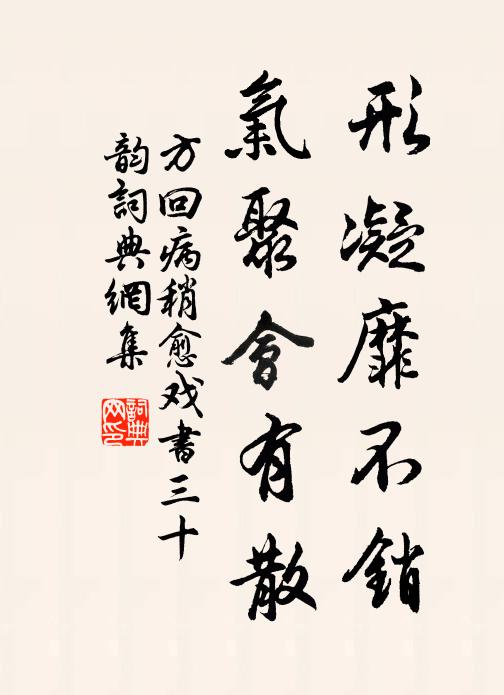 形凝靡不銷
氣聚會有散
方回病稍愈戏書三十
韵詞典網集
詞典
网印